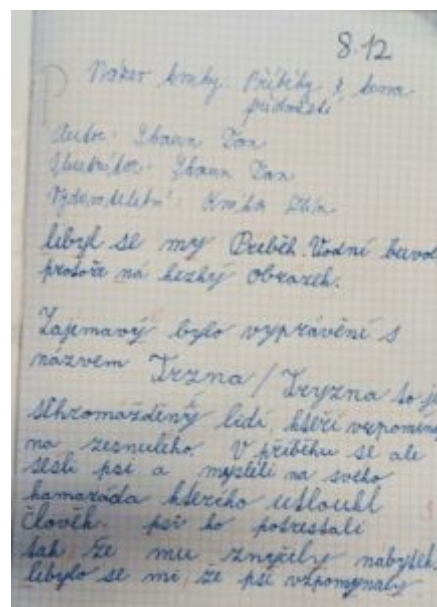 8.12
Název knihy: Příběhy z konce
předměstí
Autor: Shaun Tan
Ilustrátor: Shaun Tan
Vydavatelství: Kniha Zlín
libyl se my Přeběh Vodní buvol
protoře má hezký obrazek.
Zajemavý bylo vyprávění s
názvem Trzna / Tryzna to je
sthromáždený lidí, kteří vzpomína
na zesnuleho. V příběhu se ale
sešli psi a mysleli na svého
kamaráda kterího utloukl
člověk. psi ho potrestali
tak že mu znyčily nabytek.
libylo se mi, že psi vzpomynaly